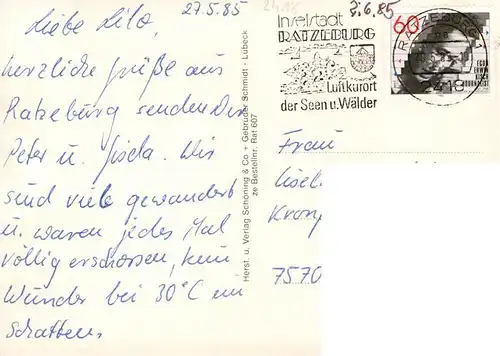 27.5.85
Liebe Lilo,
herzliche Grüße aus
Ratzeburg senden Dir
Peter u. Gisela. Wir
sind viele gewandert
u. waren jedes Mal
völlig erschossen, kein
Wunder bei 30°C im
Schatten.
Herst. u. Verlag Schöning & Co + Gebrüder Schmidt · Lübeck
ze Bestellnr. Rat 607
3.6.85
Inselstadt
RATZEBURG
Luftkurort
der Seen u. Wälder
60
RATZEBURG 1
2418
EGON
ERWIN
KISCH
Frau
Lisel
Kronp
7570